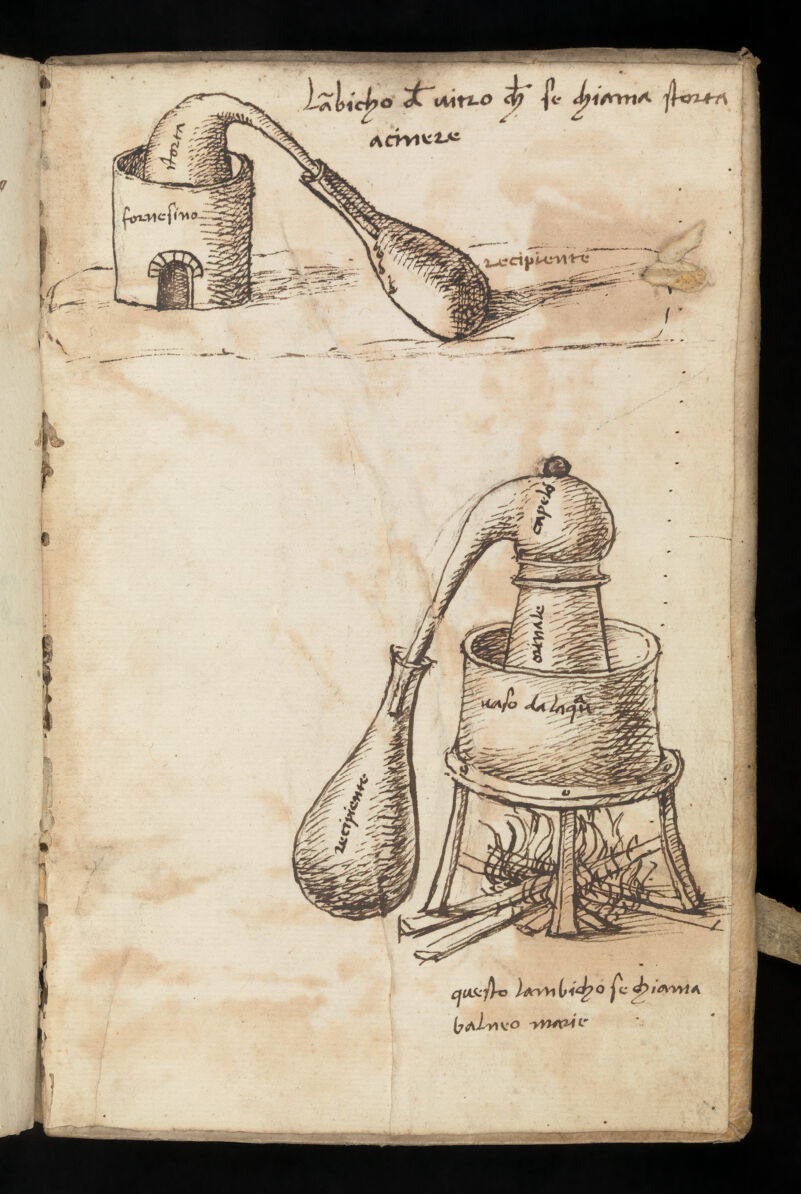 Lãbicho đ uitro cħ se chiama storta
acinere
storta
fornesino
recipiente
capelo
orinale
uaso dalaqũ
recipiente
questo lambicho se chiama
balneo marie